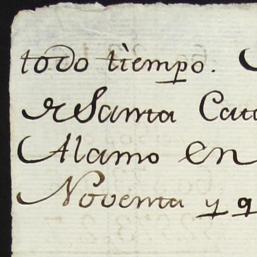 todo tiempo.
de Santa Cat
Alamo en
Noventa y q